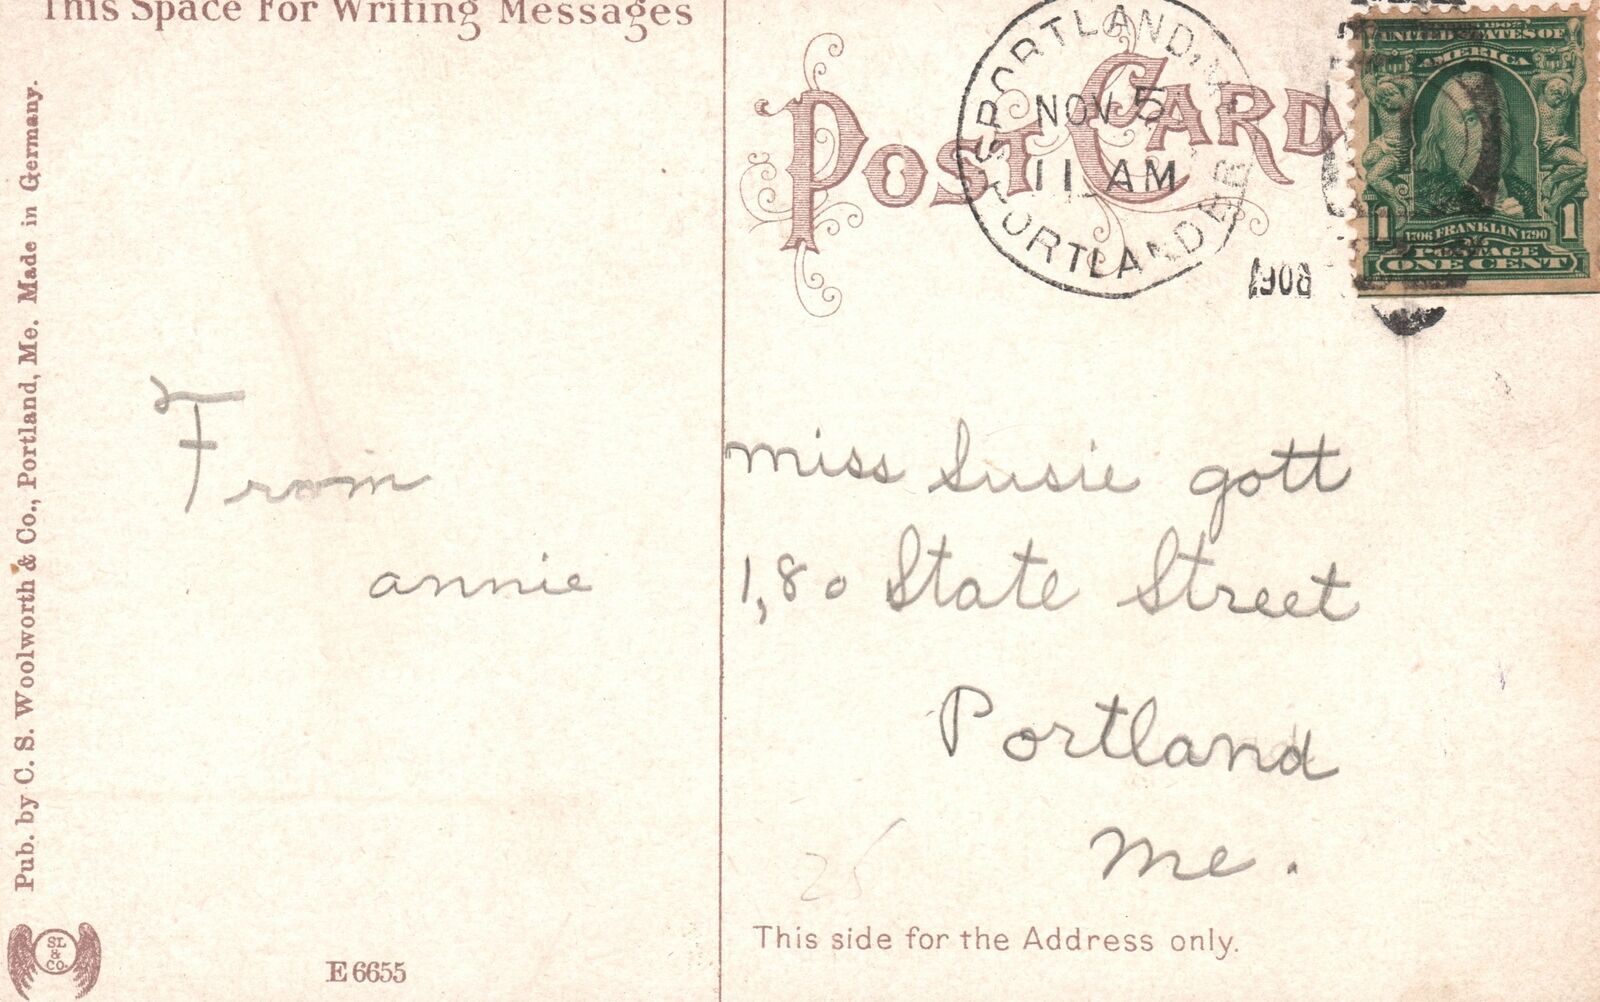 This Space For Writing Messages
POST CARD
PORTLAND,
NOV 5
11 AM
PORTLAND
SERIES 1902
UNITED STATES OF
AMERICA
1706 FRANKLIN 1790
1 1
POSTAGE
ONE CENT
From
annie
miss Susie gott
1,80 State Street
Portland
Me.
25
This side for the Address only.
Pub. by C. S. Woolworth & Co., Portland, Me. Made in Germany.
SL
&
CO.
E 6655